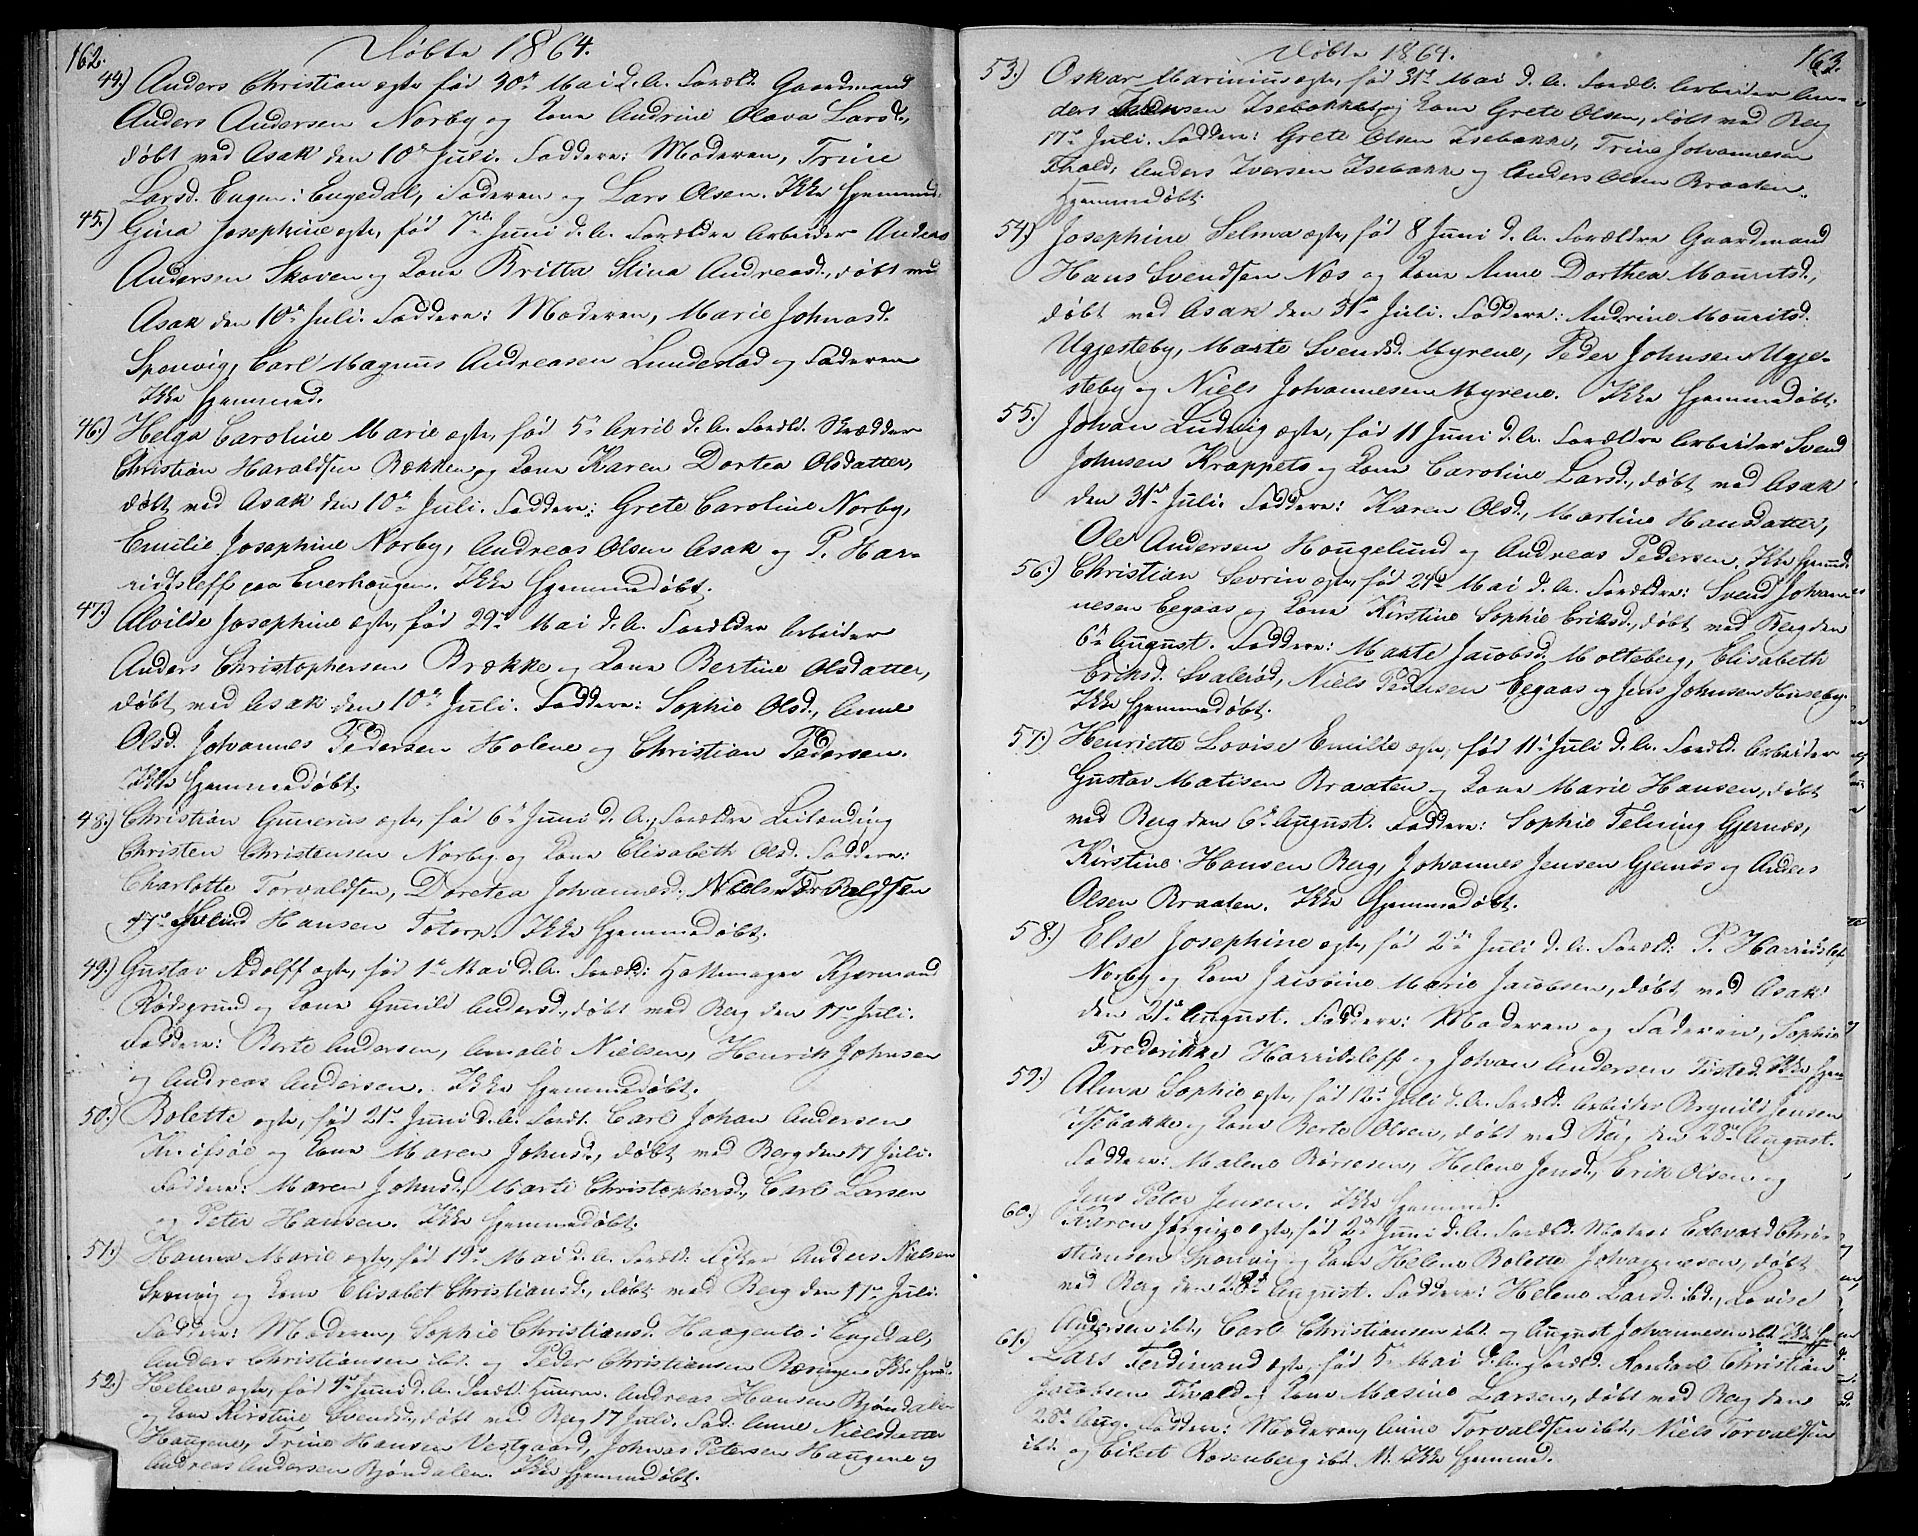 162.
Döbte 1864.
44.) Anders Christian egte, född 30te Mai d. A. Foræld. Gaardmand
Anders Andersen Norby og Kone Andrine Olava Larsd.,
döbt ved Asak den 10de Juli. Faddere: Moderen, Trine
Larsd. Eugen i Engedal, Faderen og Lars Olsen. Ikke hjemmed.
45.) Gina Josephine egte, född 7de Juni d. A. Forældre Arbeider Anders
Andersen Skoven og Kone Britta Stina Andreasd., döbt ved
Asak den 10de Juli. Faddere: Moderen, Marie Johnasd.
Sponvig, Carl Magnus Andreasen Lundestad og Faderen
Ikke hjemmed.
46.) Helga Caroline Marie egte, född 5te April d. A. Foræld. Skrædder
Christian Haraldsen Bækken og Kone Karen Dortea Olsdatter,
döbt ved Asak den 10de Juli. Faddere: Grete Caroline Norby,
Emilie Josephine Norby, Andreas Olsen Asak og P. Har-
ridsleff paa Enerhaugen. Ikke hjemmedöbt.
47.) Alvilde Josephine egte, född 29de Mai d. A. Forældre Arbeider
Anders Christophersen Brække og Kone Bertine Olsdatter,
döbt ved Asak den 10de Juli. Faddere: Sophie Olsd., Anne
Olsd. Johannes Pedersen Holene og Christian Pedersen.
Ikke hjemmedöbt.
48.) Christian Gunerus egte, född 6te Juni d. A., Forældre Leilænding
Christen Christensen Norby og Kone Elisabeth Olsd. Faddere:
Charlotte Torvaldsen, Dortea Johannesd., Niels Torvaldsen
Svend Hansen Totorp. Ikke hjemmedöbt.
49.) Gustav Adolff egte, född 1te Mai d. A. Foræld: Hattemager Kjærmand
Rödsgrund og Kone Gunild Andersd., döbt ved Berg den 17de Juli.
Faddere: Berte Andersen, Amalie Nielsen, Henrik Johnsen
og Andreas Andersen. Ikke hjemmedöbt.
50.) Bolette egte, född 21de Juni d. A. Foræld. Carl Johan Andersen
Knifsöe og Kone Maren Johnsd., döbt ved Berg den 17 Juli.
Faddere: Maren Johnsd., Marte Christophersd., Carl Larsen
og Peter Hansen. Ikke hjemmedöbt.
51.) Hanna Marie egte, född 19de Mai d. A. Foræld: Fisker Anders Nielsen
Sponvig og Kone Elisabet Christiansd., döbt ved Berg den 17de Juli.
Faddere: Moderen, Sophie Christiansd. Haagento i Engedal,
Anders Christiansen ibd. og Peder Christiansen Ikke hjemd.
52.) Helene egte, född 9de Juni d. A. Foræld: Andreas Hansen Björndalen
og Kone Kirstine Svendsd., döbt ved Berg 17 Juli. Fad: Anne Nielsdatter
Haugene, Trine Hansen Vestgaard, Johnas Petersen Haugene og
Andreas Andersen Björndalen. Ikke hjemmedöbt.
163.
Döbte 1864.
53.) Oskar Marinius egte, född 31te Mai d. A. Foræld. Arbeider An-
ders Iversen Isebakke og Kone Grete Olsen, döbt ved Berg
17de Juli. Faddere: Grete Olsen Isebakke, Trine Johannesen
Thvald, Anders Iversen Isebakke og Anders Olsen Braaten.
Hjemmedöbt.
54.) Josephine Selma egte, född 8 Juni d. A. Forældre Gaardmand
Hans Svendsen Næs og Kone Anne Dorthea Mouritsd.,
döbt ved Asak den 31te Juli. Faddere: Andrine Mouritsd.
Ugjesteby, Marte Svendsd. Myrene, Peder Johnsen Ugje-
steby og Niels Johannesen Myrene. Ikke hjemmedöbt.
55.) Johan Ludvig egte, född 11 Juni d. A. Forældre Arbeider Svend
Johnsen Krappeto og Kone Caroline Larsd., döbt ved Asak
den 31te Juli. Faddere: Karen Olsd., Martine Hansdatter,
Ole Andersen Hougelund og Andreas Pedersen. Ikke hjemmd.
56.) Christian Sevrin egte, född 24de Mai d. A. Forældre: Svend Johan-
nesen Eegaas og Kone Kirstine Sophie Eriksd., döbt ved Berg den
6te August. Faddere: Marte Jacobsd. Molteberg, Elisabeth
Eriksd. Svaleröd, Niels Pedersen Eegaas og Jens Johnsen Huseby.
Ikke hjemmedöbt.
57.) Henriette Lovise Emilie egte, född 11te Juli d. A. Foræld. Arbeider
Gustav Matisen Braaten og Kone Marie Hansen, döbt
ved Berg den 6te August. Faddere: Sophie Telning Gjernæs,
Kirstine Hansen Berg, Johannes Jensen Gjernæs og Anders
Olsen Braaten. Ikke hjemmedöbt.
58.) Else Josephine egte, född 2den Juli d. A. Foræld: P. Harridslef
Norby og Kone Marie Jacobsen, döbt ved Asak
den 21de August. Faddere: Moderen og Faderen, Sophie
Frederikke Harridsleff og Johan Andersen Tisted. Ikke hjem
59.) Alma Sophie egte, född 12te Juli d. A. Foræld. Arbeider Brynild Jensen
Isebakke og Kone Berte Olsen, döbt ved Berg den 28de August.
Faddere: Malene Börresen, Helene Jensd., Erik Olsen og
Jens Peter Jensen. Ikke hjemmed.
60.) Karen Jörgine egte, född 2den Juni d. A. Foræld. Matros Edevard Chri-
stiansen Sponvig og Kone Helene Bolette Johannesen, döbt
ved Berg den 28de August. Faddere: Helene Larsd. ibd., Lovise
Andersen ibd., Carl Christiansen ibd. og August Johannesen ibd. Ikke hjem
61.) Lars Ferdinand egte, född 5te Mai d. A. Foræld. Christian
Jacobsen Thvald og Kone Masine Larsen, döbt ved Berg den
28de Aug. Faddere: Moderen, Anne Torvaldsen ibd., Niels Torvaldsen
ibd. og Eilert Rosenberg ibd. Ikke hjemmed.